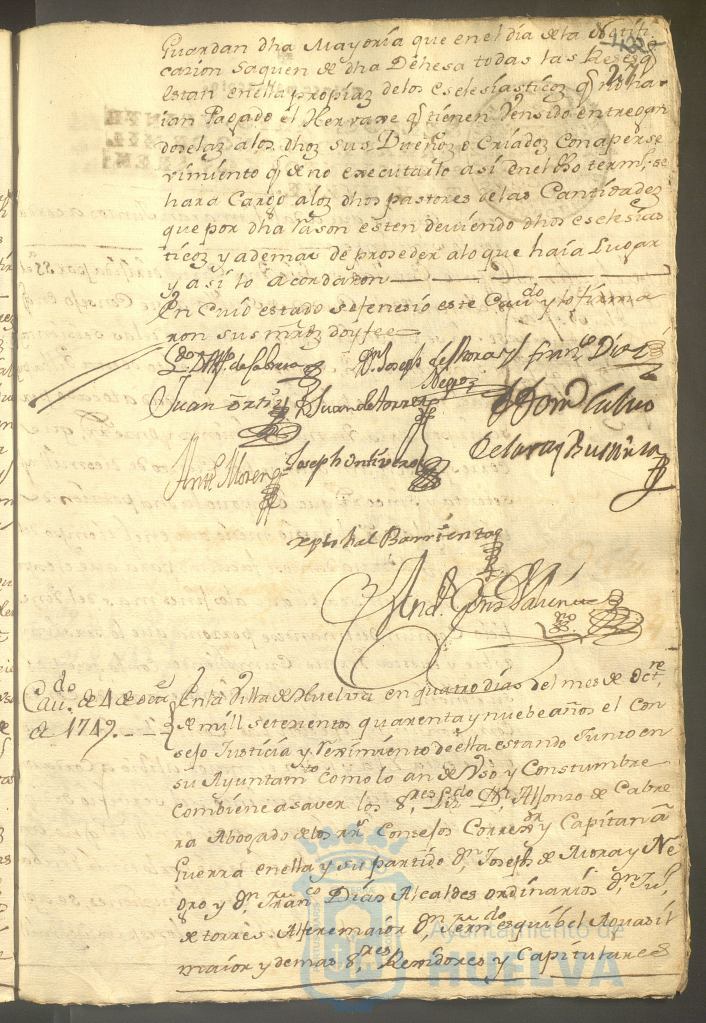 Guardan dha Mayoria que en el dia de la Notifi
cacion saquen de dha Dehesa todas las Reses q
estan en ella propias de los eclesiasticos q no ha
ian Pagado el Hervaxe q tienen Vensido entregan
doselas a los dhos sus Dueños o Criados con aperse
vimiento q de no executarlo asi en el dho termo se
hara Cargo a los dhos pastores de las Cantidades
que por dha rason esten deviendo dhos eclesias
ticos y ademas de proseder a lo que haia Lugar
y asi lo acordaron
En cuio estado se fenesio este Cavdo y lo firma
ron sus mrds doy fee
de Cabrera Dn Joseph de Mora y Franco Dias
Negro
Juan Ortiz Juan de Torres
Anto Moreno Joseph Ontivero
xptobal Barrientos
Cavdo de 4 de octre
de 1749.
En la Villa de Huelva en quatro dias del mes de octre
de mill setesientos quarenta y nuebe años el Con
sejo Justicia y Reximiento de ella estando Junto en
su Ayuntamto como lo an de Vso y Constumbre
combiene a saver los Sres Lizdo Dn Alfonzo de Cabre
ra Abogado de los Rs Consejos Correxdr y Capitan a
Guerra en ella y su partido Dn Joseph de Mora y Ne
gro y Dn Franco Dias Alcaldes ordinarios Dn Jul
de torres Alferes maior Dn Ferndo esquibel Aguasil
maior y demas Sres Rexidores y Capitulares
Ayuntamiento de
HUELVA